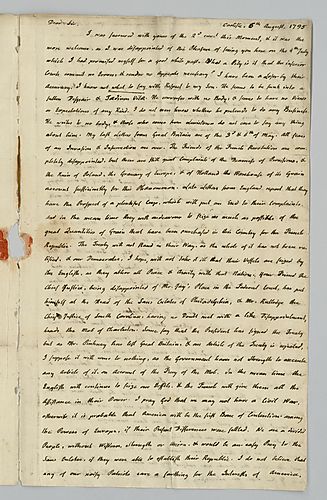 Dear Sir, Carlisle, 6th August, 1795
I was favoured with yours of the 2d inst. this Moment, & it was the
more welcome, as I was disappointed of the Pleasure of seeing you here on the 4th July
which I had promised myself for a good while past. What a Pity is it that the inferior
Courts commit no Errors, & render no Appeals necessary!
accuracy. I know not what to say with respect to my Son. He seems to be sunk into a
sullen Despair &
or Expectations of any Kind. I do not even know whether he pretends to do any Business
He writes to no body, & those who come from
about him. My last Letters from Great Britain are of the 3d & 6th of May: all fears
of an Invasion & Insurrection are over. The Friends of the French Revolution are com-
pletely disappointed: but there are still great Complaints of the Scarcity of Provisions, &
the Ruin of Poland, the Granary of Europe, & of Holland the Storehouse of its Grain
account sufficiently for this Phenomenon. Late Letters from England report that they
have the Prospect of a plentiful Crop, which will put an End to their Complaints,
but in the mean time they will endeavour to seize as much as possible, of the
great Quantities of Grain that have been purchased in this Country for the French
Republic. The Treaty will not stand in their Way, as the whole of it has not been ra-
tified, & our Democrats, I hope, will not take it ill that their Vessels are seized by
the English, as they abhor all Peace & Amity with that Nation. Your Friend the
Chief Justice, being disappointed of the Place in the Federal Court, has put
himself at the Head of the Sans Culotes of Philadelphia, & Mr. Rutledge the
Chief Justice of South Carolina, having, no Doubt met with a like Disappointment,
heads the Mob of Charleston. Some say that the President has signed the Treaty
but as Mr. Pinkney has left Great Britain, & one Article of the Treaty is rejected,
I suppose it will come to nothing, as the Government have not Strength to execute
any Article of it, on account of the Fury of the Mob. In the mean time the
English will continue to seize our Vessels, & the French will give them all the
Assistance in their Power. I pray God that we may not have a Civil War,
otherwise it is probable that America will be the first Bone of Contention among
the Powers of Europe, if their present Differences were settled. We are a divided
People, without Wisdom, Strength or Union, & would be an easy Prey to the
Sans Culotes, if they were able to establish their Republic. I do not believe that
any of our noisy Patriots care a farthing for the Interests of America,